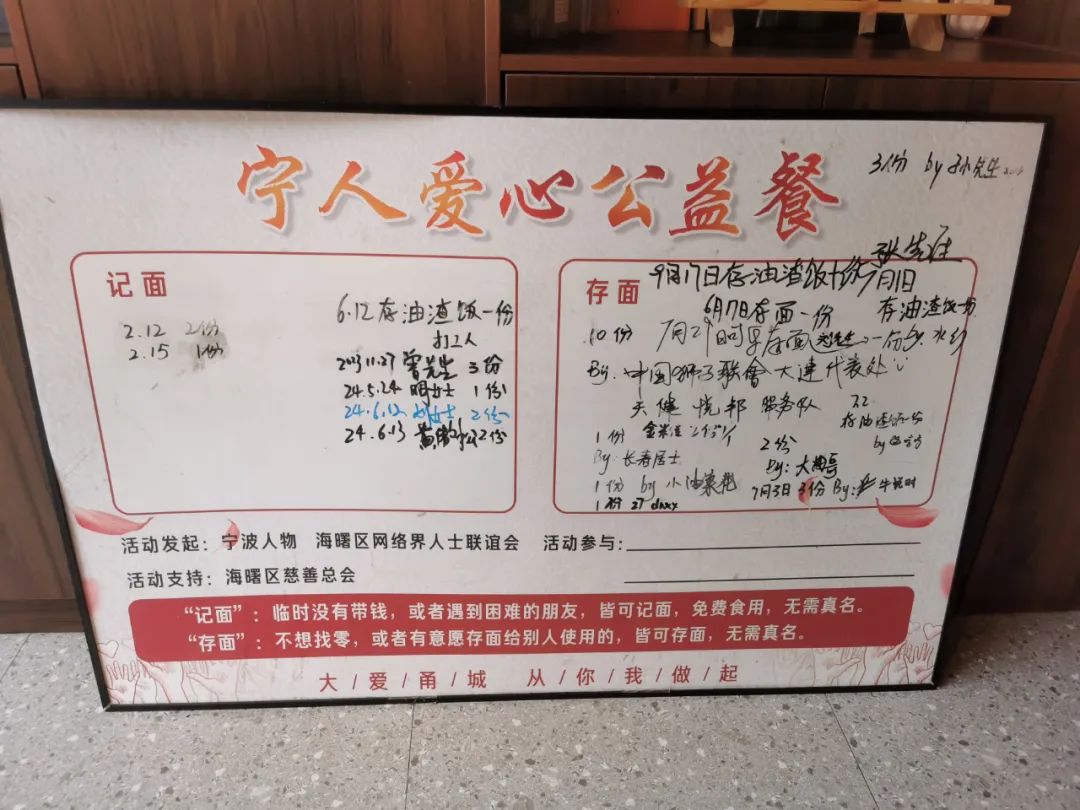 宁人爱心公益餐
3份 by 孙先生
记面
2.12 2份
2.15 1份
6.12存油渣饭一份
打工人
2023.11.27 曾先生 3份
24.5.24 明女士 1份
24.6.12 刘女士 2份
24.6.13 2份
存面
9月17日存油渣饭十份
7月1日
存油渣饭一份
6月7日存面一份
10份
By: 中国狮子联会大连代表处
天健悦邦 服务队
1份
By: 长寿居士
2份
By:
存油渣饭一份
1份 by 小油菜花
7月3日 3份 By:
1份 27 daxx
活动发起：宁波人物 海曙区网络界人士联谊会 活动参与：
活动支持：海曙区慈善总会
“记面”：临时没有带钱，或者遇到困难的朋友，皆可记面，免费食用，无需真名。
“存面”：不想找零，或者有意愿存面给别人使用的，皆可存面，无需真名。
大/爱/甬/城 从/你/我/做/起